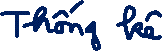 Thống kê